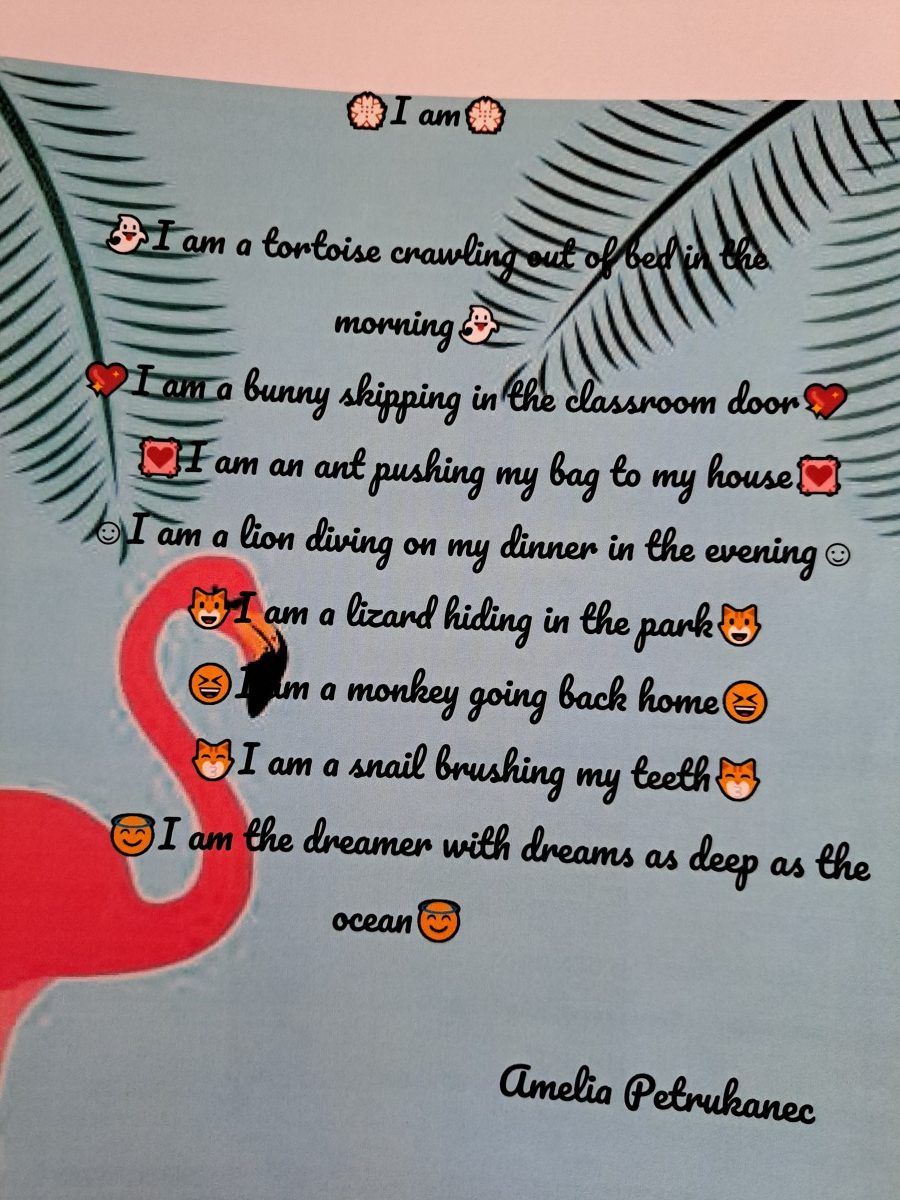 I am
I am a tortoise crawling out of bed in the
morning
I am a bunny skipping in the classroom door
I am an ant pushing my bag to my house
I am a lion diving on my dinner in the evening
I am a lizard hiding in the park
I am a monkey going back home
I am a snail brushing my teeth
I am the dreamer with dreams as deep as the
ocean
Amelia Petrukanec